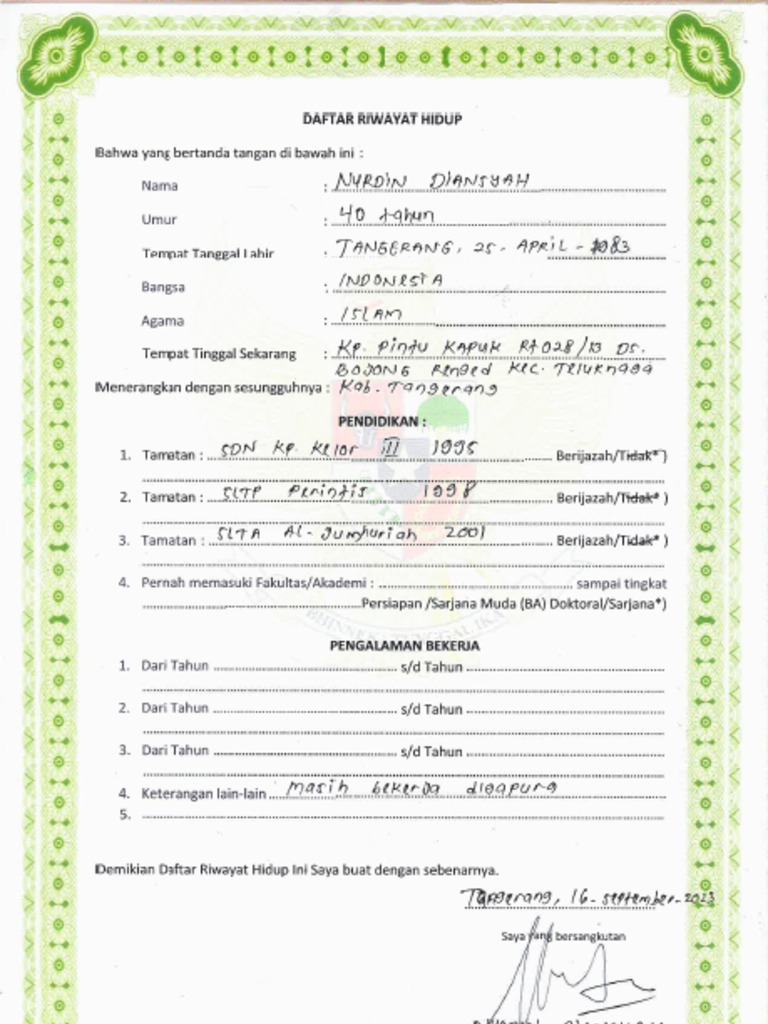 DAFTAR RIWAYAT HIDUP
Bahwa yang bertanda tangan di bawah ini :
Nama : NURDIN DIANSYAH
Umur : 40 tahun
Tempat Tanggal Lahir : TANGERANG, 25 - APRIL - 1983
Bangsa : INDONESIA
Agama : ISLAM
Tempat Tinggal Sekarang : Kp. PINTU KAPUK Rt 028/13 DS.
BOJONG Renged Kec. Teluknaga
Menerangkan dengan sesungguhnya : Kab. Tangerang
PENDIDIKAN :
1. Tamatan : SDN Kp. Kelor III 1995 Berijazah/Tidak*)
2. Tamatan : SLTP Perintis 1998 Berijazah/Tidak*)
3. Tamatan : SLTA AL-Jumhuriah 2001 Berijazah/Tidak*)
4. Pernah memasuki Fakultas/Akademi : sampai tingkat
Persiapan /Sarjana Muda (BA) Doktoral/Sarjana*)
BHINNEKA TUNGGAL IKA
PENGALAMAN BEKERJA
1. Dari Tahun s/d Tahun
2. Dari Tahun s/d Tahun
3. Dari Tahun s/d Tahun
4. Keterangan lain-lain Masih bekerja digapura
5.
Demikian Daftar Riwayat Hidup Ini Saya buat dengan sebenarnya.
Tangerang, 16 - september - 2023
Saya yang bersangkutan